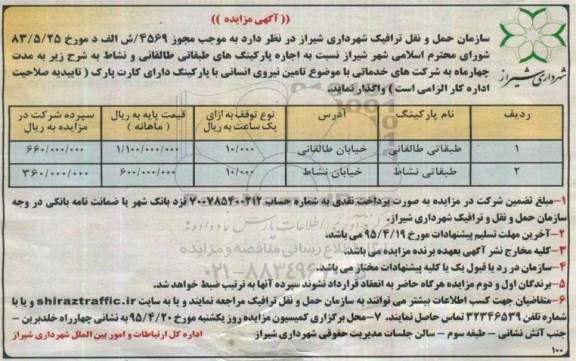 (( آگهی مزایده ))
شهرداری شیراز
سازمان حمل و نقل ترافیک شهرداری شیراز در نظر دارد به موجب مجوز ۴۵۶۹/ش الف د مورخ ۸۳/۵/۲۵
شورای محترم اسلامی شهر شیراز نسبت به اجاره پارکینگ های طبقاتی طالقانی و نشاط به شرح زیر به مدت
چهارماه به شرکت های خدماتی با موضوع تامین نیروی انسانی یا پارکینگ دارای کارت پارک ( تاییدیه صلاحیت
اداره کار الزامی است ) واگذار نماید.
ردیف نام پارکینگ آدرس نوع توقف به ازای یک ساعت به ریال قیمت پایه به ریال ( ماهانه ) سپرده شرکت در مزایده به ریال
۱ طبقاتی طالقانی خیابان طالقانی ۱۰/۰۰۰ ۱/۱۰۰/۰۰۰/۰۰۰ ۶۶۰/۰۰۰/۰۰۰
۲ طبقاتی نشاط خیابان نشاط ۱۰/۰۰۰ ۶۰۰/۰۰۰/۰۰۰ ۳۶۰/۰۰۰/۰۰۰
۱–مبلغ تضمین شرکت در مزایده به صورت پرداخت نقدی به شماره حساب ۷۰۰۷۸۵۴۰۰۲۱۲ نزد بانک شهر یا ضمانت نامه بانکی در وجه
سازمان حمل و نقل و ترافیک شهرداری شیراز.
۲–آخرین مهلت تسلیم پیشنهادات مورخ ۹۵/۴/۱۹ می باشد.
۳–کلیه مخارج نشر آگهی بعهده برنده مزایده می باشد.
۴–سازمان در رد یا قبول یک یا کلیه پیشنهادات مختار می باشد.
۵–برندگان اول و دوم مزایده هرگاه حاضر به انعقاد قرارداد نشوند سپرده آنها به ترتیب ضبط خواهد شد.
۶–متقاضیان جهت کسب اطلاعات بیشتر می توانند به سازمان حمل و نقل ترافیک مراجعه نمایند و یا به سایت shiraztraffic.ir و یا با
شماره تلفن ۳۲۳۴۶۵۳۹ تماس حاصل نمایند. ۷–محل برگزاری کمیسیون مزایده روز یکشنبه مورخ ۹۵/۴/۲۰ به نشانی چهارراه خلدبرین –
جنب آتش نشانی – طبقه سوم – سالن جلسات مدیریت حقوقی شهرداری شیراز
اداره کل ارتباطات و امور بین الملل شهرداری شیراز
۱۰۰